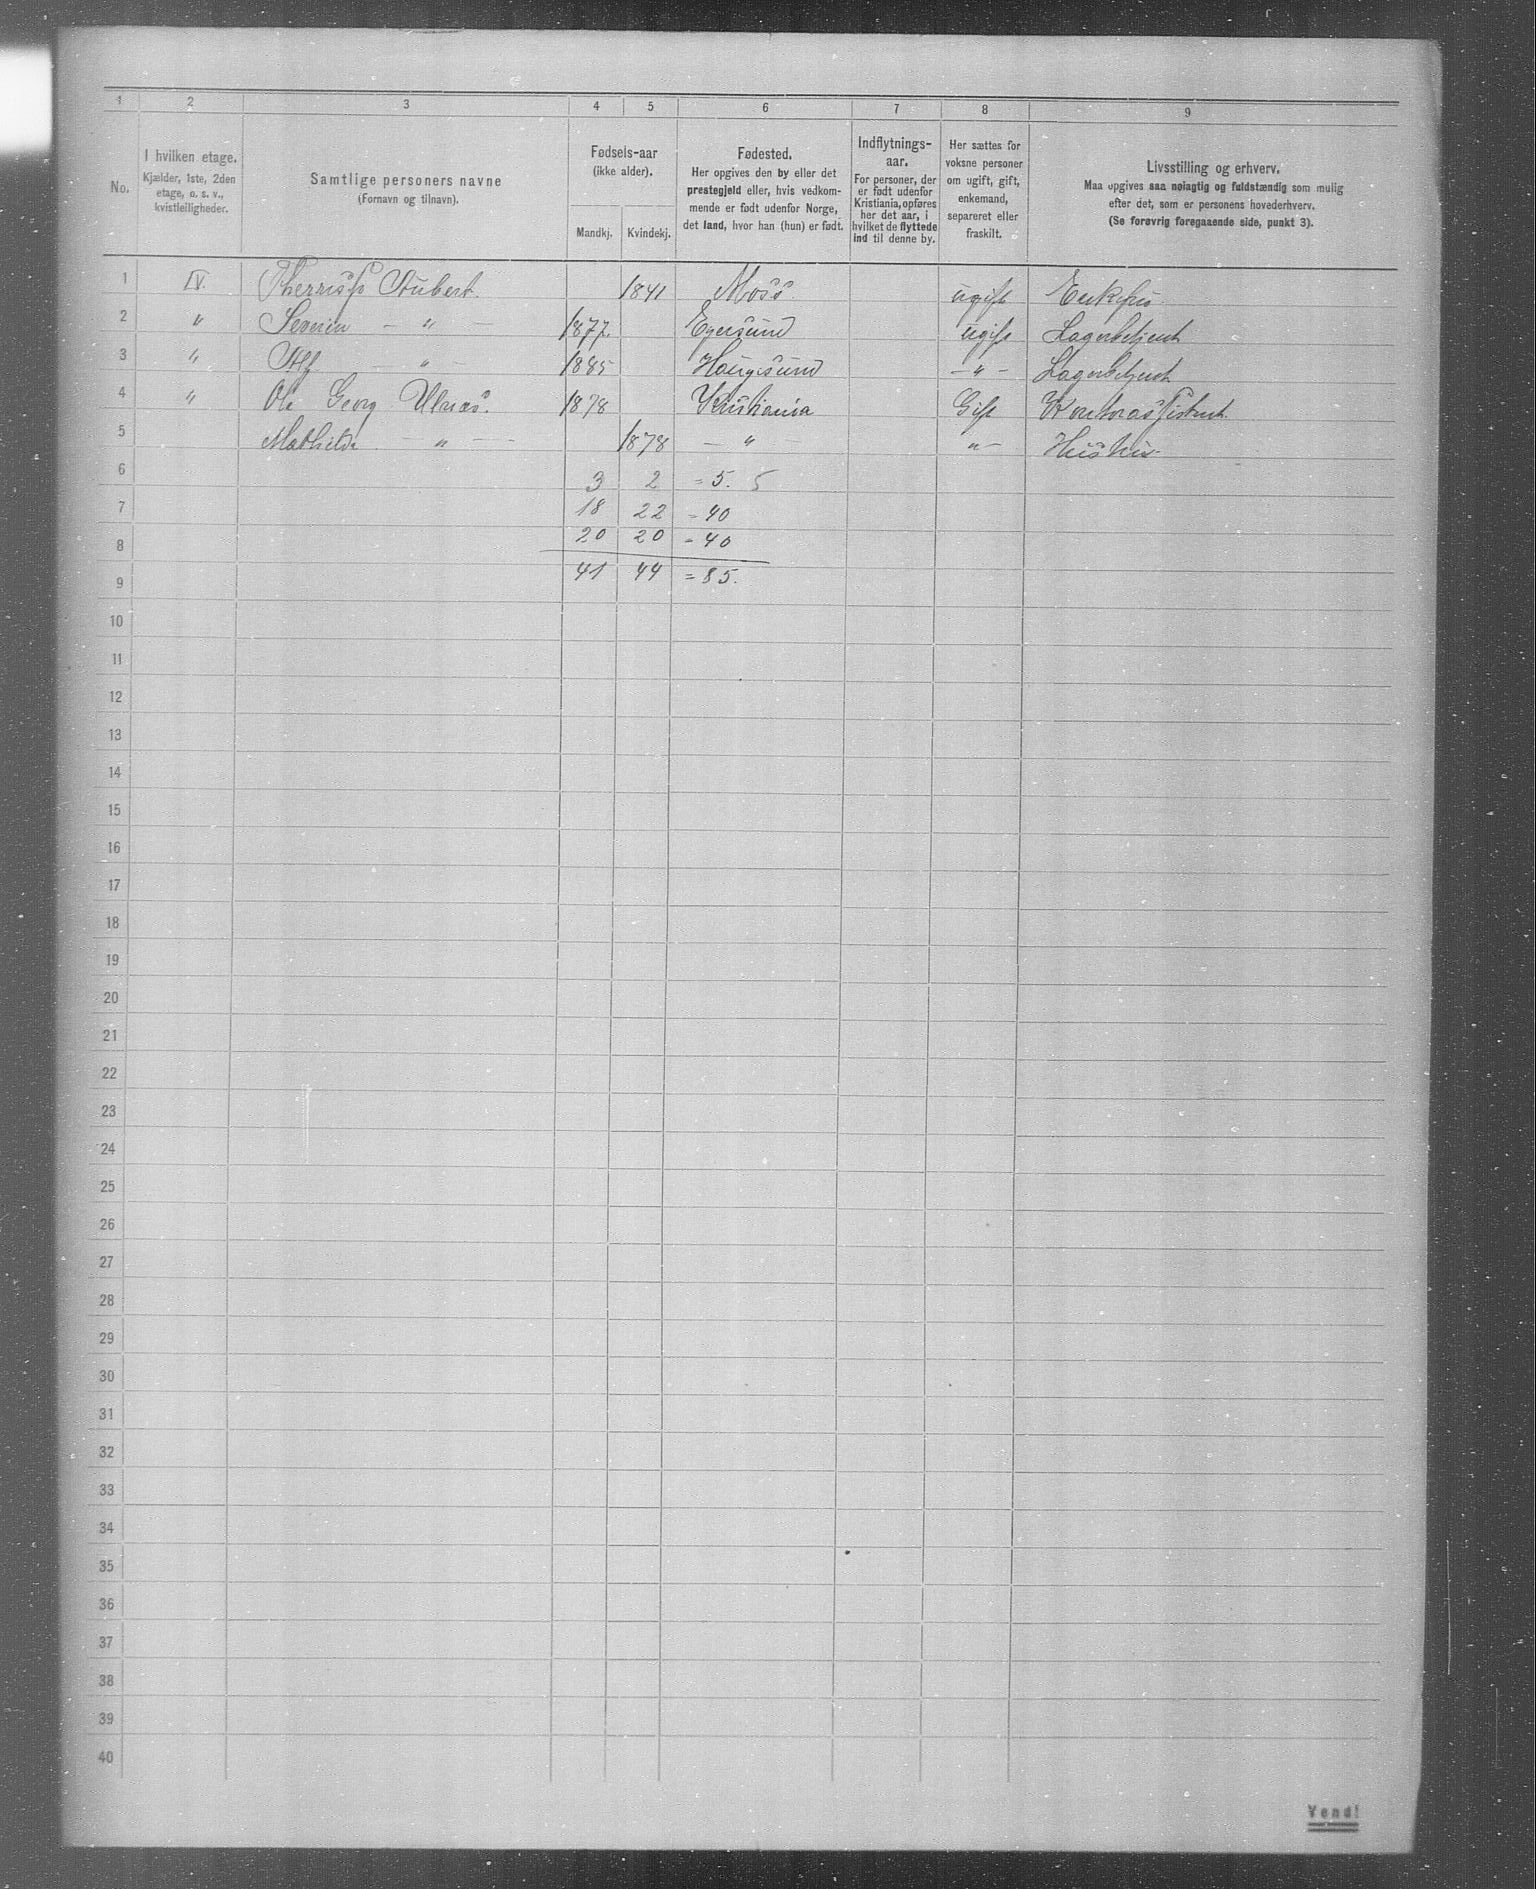 1 2 3 4 5 6 7 8 9
No.
I hvilken etage.
Kjælder, 1ste, 2den
etage, o. s. v.,
kvistleiligheder.
Samtlige personers navne
(Fornavn og tilnavn).
Fødsels-aar
(ikke alder).
Mandkj. Kvindekj.
Fødested.
Her opgives den by eller det
prestegjeld eller, hvis vedkom-
mende er født udenfor Norge,
det land, hvor han (hun) er født.
Indflytnings-
aar.
For personer, der
er født udenfor
Kristiania, opføres
her det aar, i
hvilket de flyttede
ind til denne by.
Her sættes for
voksne personer
om ugift, gift,
enkemand,
separeret eller
fraskilt.
Livsstilling og erhverv.
Maa opgives saa nøiagtig og fuldstændig som mulig
efter det, som er personens hovederhverv.
(Se forøvrig foregaaende side, punkt 3).
1 IV. Stubert. 1841 Moss. ugift
2 " Severin - " - 1877. Egersund ugift Lagerbetjent
3 " - " - 1885 Haugesund - " - Lagerbetjent
4 " Ole Georg Ulnæs. 1878 Kristiania Gift Kontorassistent.
5 Mathilde - " - 1878 - " " - Hustru.
6 3 2 = 5. 5
7 18 22 = 40
8 20 20 = 40
9 41 44 = 85.
10
11
12
13
14
15
16
17
18
19
20
21
22
23
24
25
26
27
28
29
30
31
32
33
34
35
36
37
38
39
40
Vend!